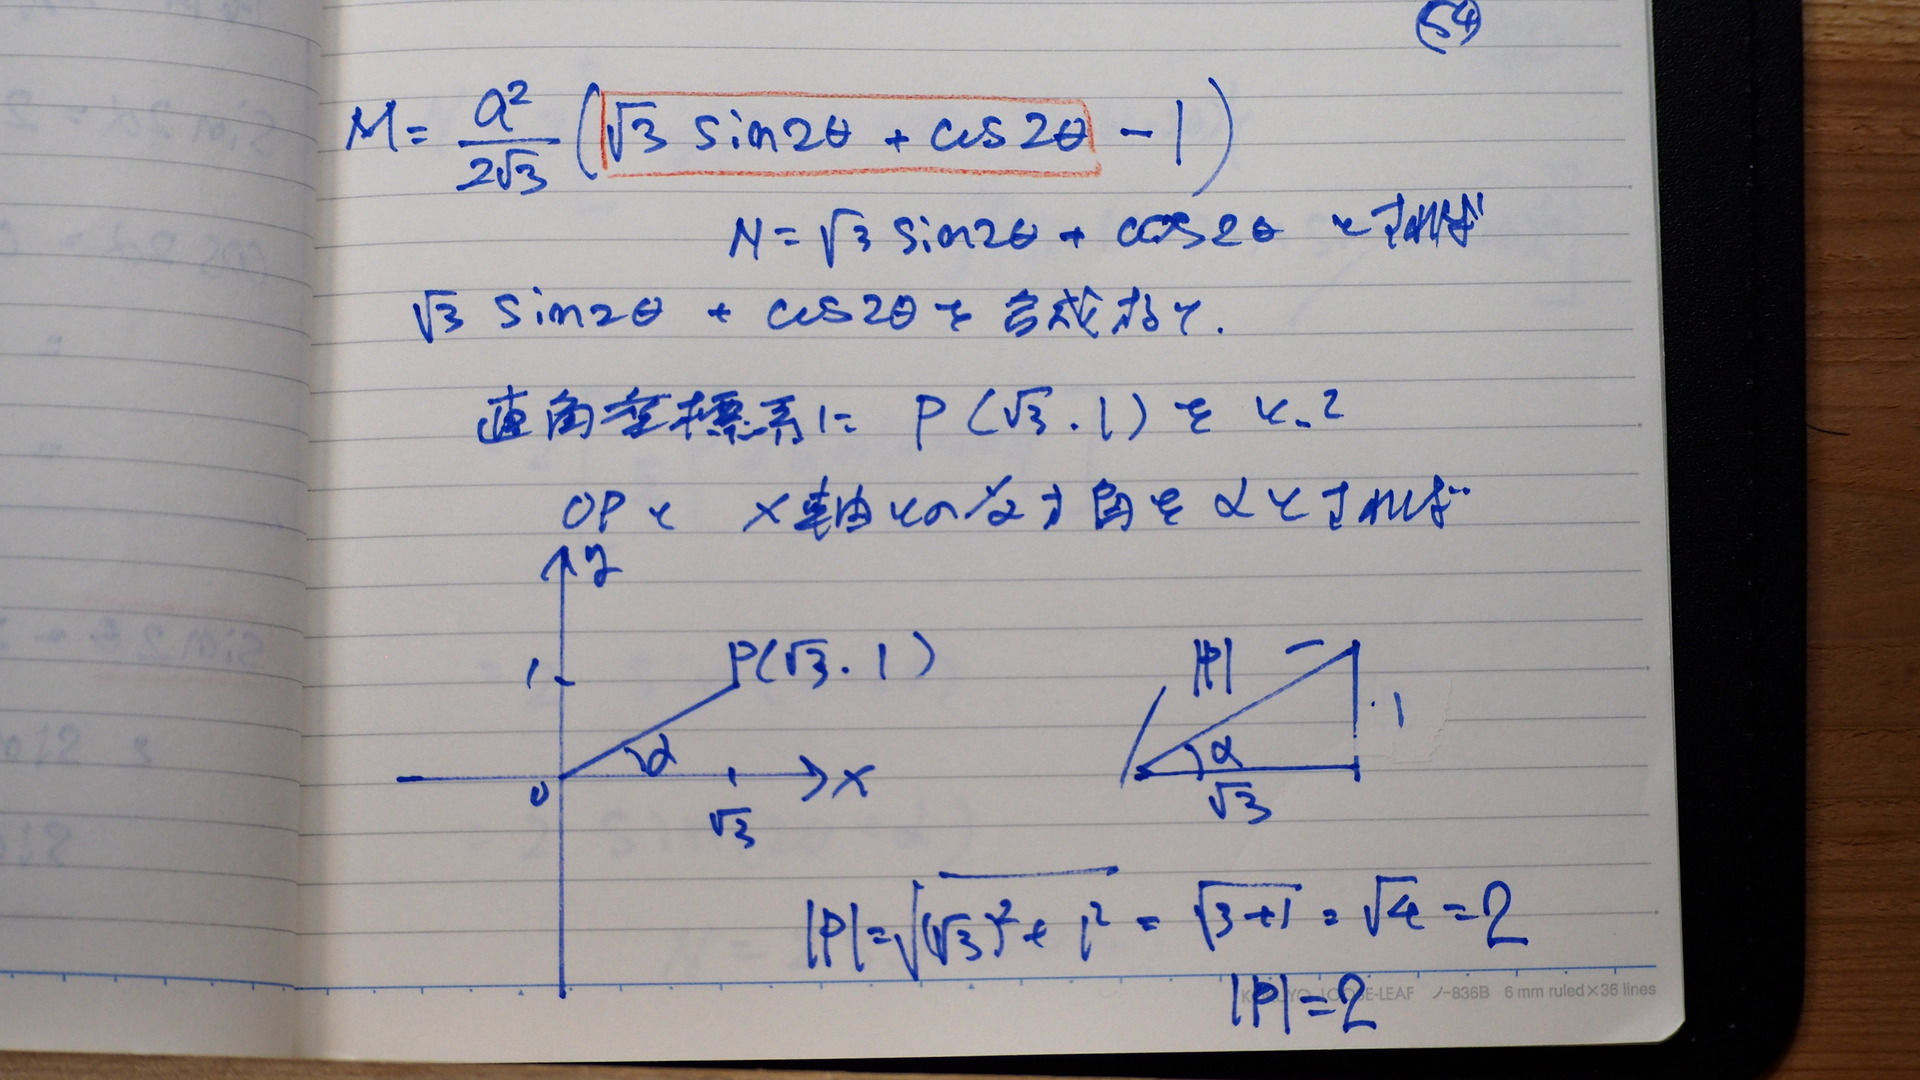 (54)
M = a²/2√3 (√3 sin2θ + cos2θ - 1)
N = √3 sin2θ + cos2θ とすれば
√3 sin2θ + cos2θを合成すると.
直角座標系に P(√3.1)をとって
OPと x軸とのなす角をαとすれば
y
1
P(√3.1)
α
0
x
√3
|P|
1
α
√3
|P|=√(√3)²+1² = √3+1 = √4 = 2
|P|=2
KOKUYO LOOSE-LEAF ノ-836B 6 mm ruled×36 lines